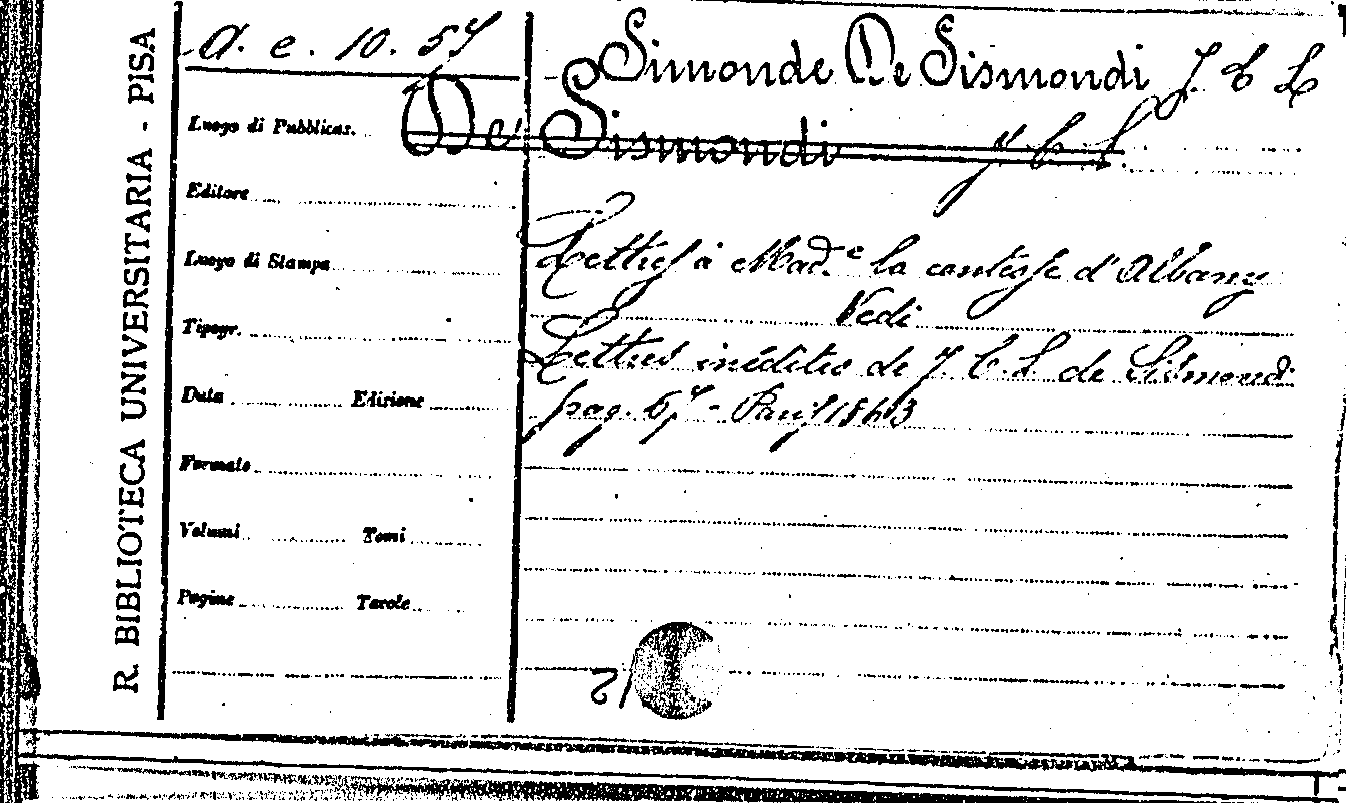 R. BIBLIOTECA UNIVERSITARIA - PISA
A. e. 10. 57
Simonde De Sismondi J C L
Luogo di Pubblicaz.
De Sismondi J. C. L.
Editore
Luogo di Stampa
Lettres à Mad.e la contesse d'Albany
Tipogr.
Vedi
Lettres inédites de J. C. L. de Sismondi
Data Edizione
pag. 67 - Paris 1863
Formato
Volumi Tomi
Pagine Tavole